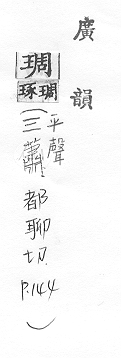 廣韻
琱
琢琱
(平聲
三蕭 都聊切 P.144)